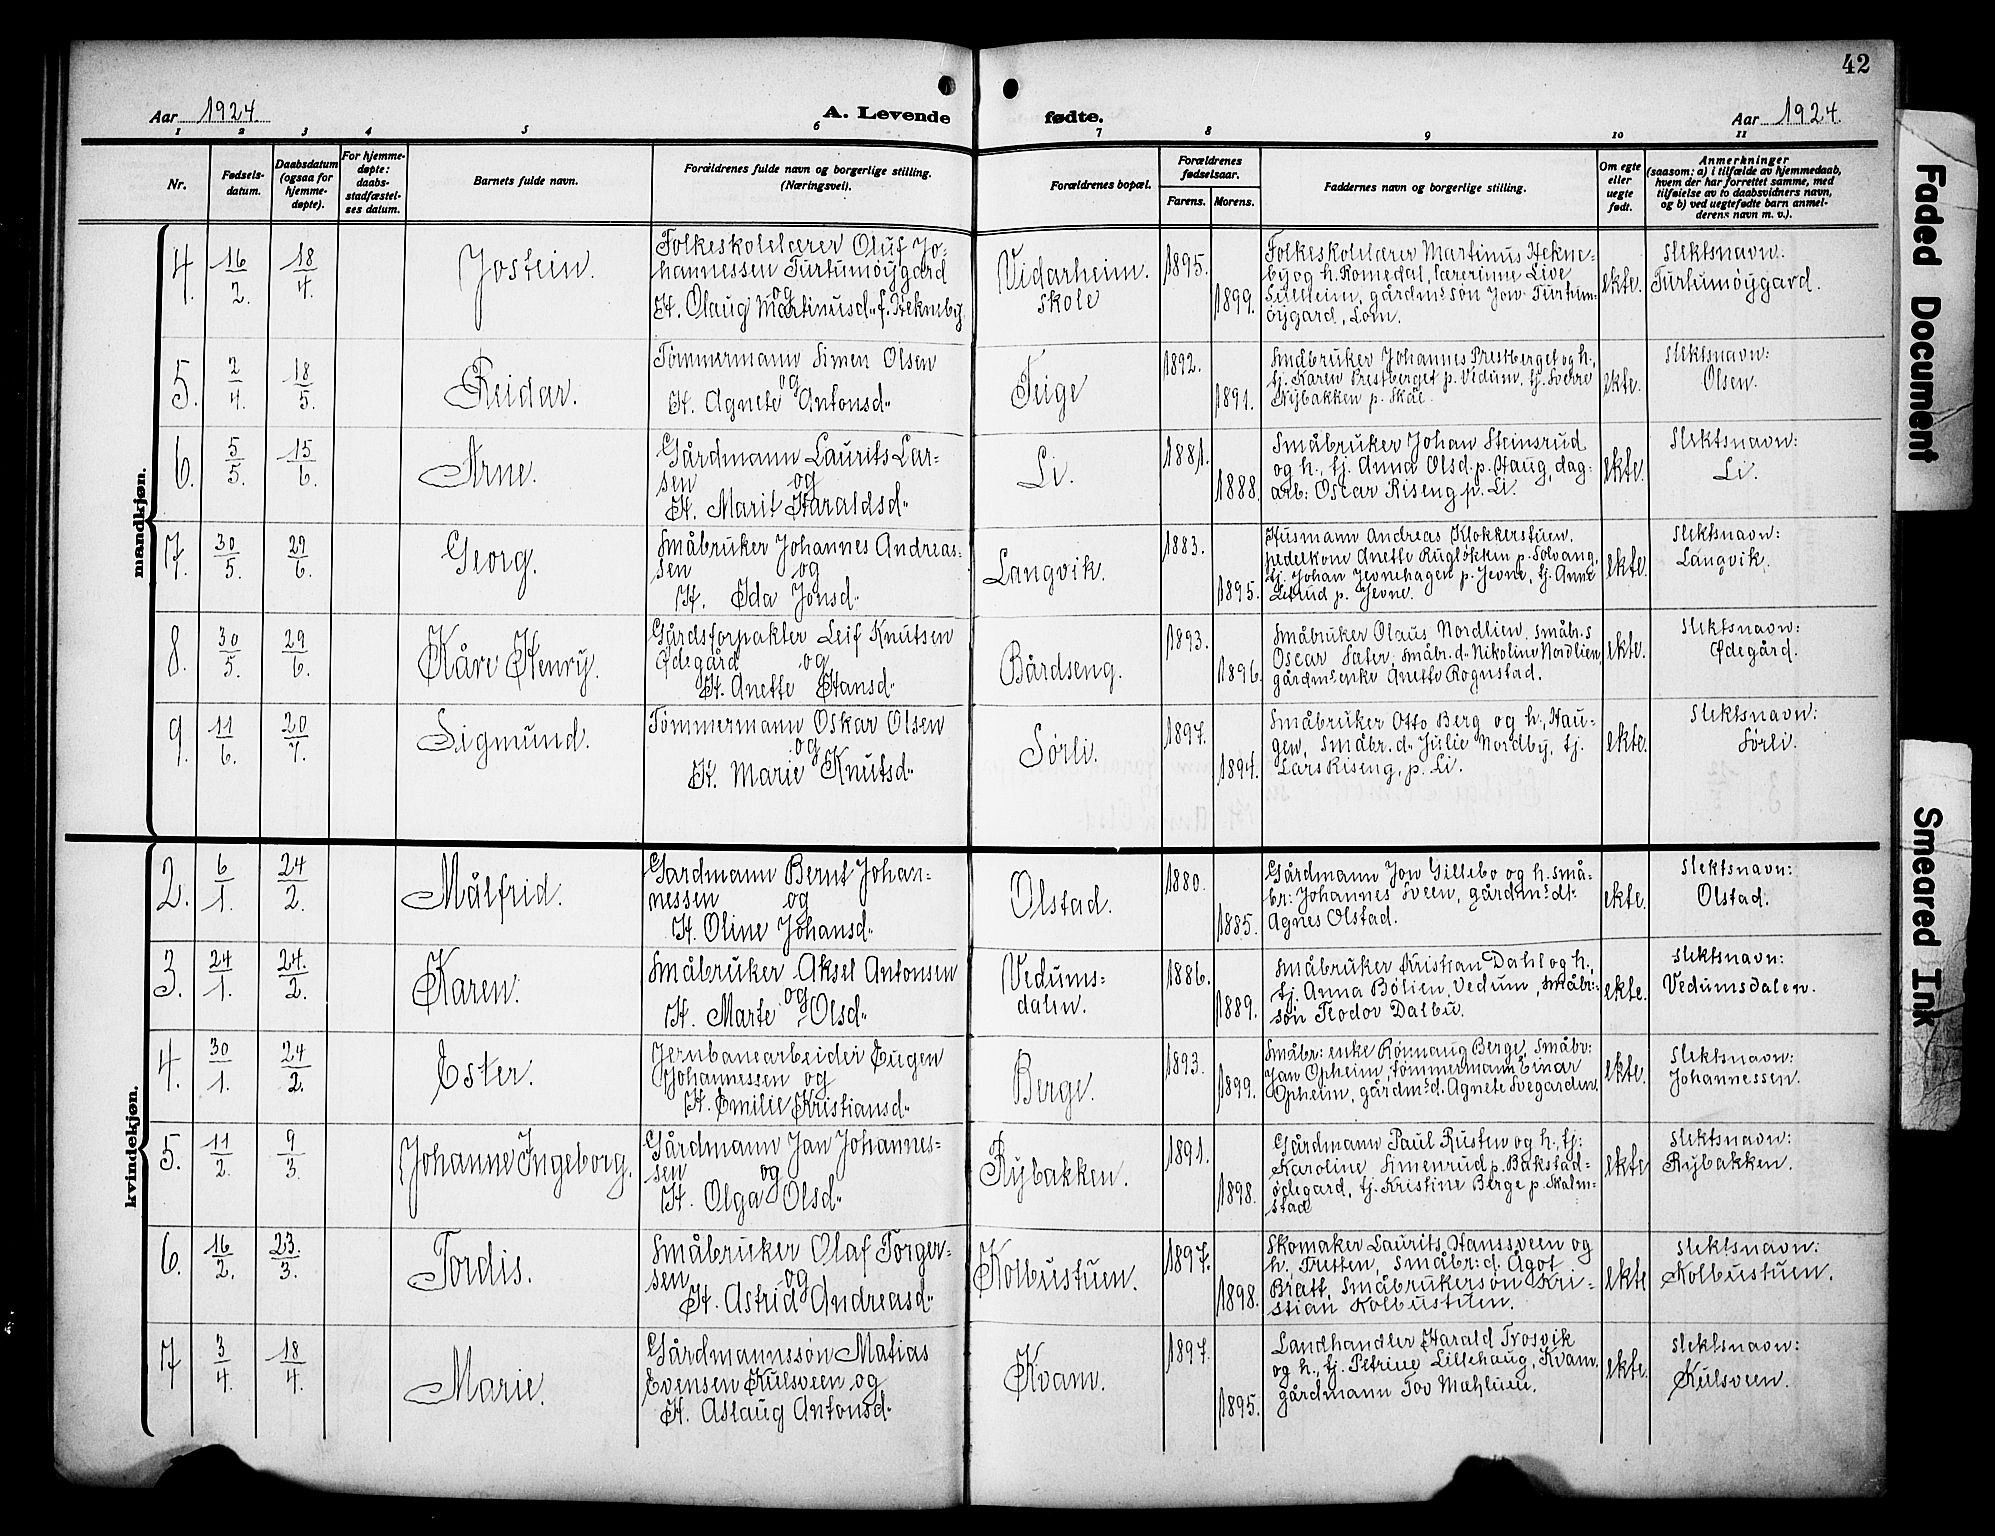 42
Aar 1924.
A. Levende
fødte.
Aar 1924.
1 2 3 4 5 6 7 8 9 10 11
Nr.
Fødsels-
datum.
Daabsdatum
(ogsaa for
hjemme-
døpte).
For hjemme-
døpte:
daabs-
stadfæstel-
ses datum.
Barnets fulde navn.
Forældrenes fulde navn og borgerlige stilling.
(Næringsvei).
Forældrenes bopæl.
Forældrenes
fødselsaar.
Farens. Morens.
Faddernes navn og borgerlige stilling.
Om egte
eller
uegte
født.
Anmerkninger
(saasom: a) i tilfælde av hjemmedaab,
hvem der har forrettet samme, med
tilføielse av to daabsvidners navn,
og b) ved uegtefødte barn anmel-
derens navn m. v.).
mandkjøn.
4. 16/2. 18/4. Jostein.
Folkeskolelærer Oluf Jo-
hannessen Turtumøygard
og
H. Olaug Martinusd. f. Hekneby
Vidarheim
skole
1895. 1899.
Folkeskolelærer Martinus Hekne-
by og h. Romedal, lærerinne Live
Sulheim, gårdm.søn Jon Turtum-
øygard, Lom.
ekte.
Slektsnavn:
Turtumøygard.
5. 2/4. 18/5. Reidar.
Tømmermann Simen Olsen
og
H. Agnete Antonsd.
Teige
1892. 1891.
Småbruker Johannes Prestberget og h.,
tj. Karen Prestberget p. Vedum, tj. Sverre
Rybakken p. Skåe.
ekte.
Slektsnavn:
Olsen.
6. 5/5. 15/6. Arne.
Gårdmann Laurits Lar-
sen og
H. Marit Haraldsd.
Li.
1881. 1888.
Småbruker Johan Steinsrud
og h., tj. Anna Olsd. p. Haug, dag-
arb: Oscar Riseng p. Li.
ekte.
Slektsnavn:
Li.
7. 30/5. 29/6. Georg.
Småbruker Johannes Andreas-
sen og
H. Ida Jonsd.
Langvik.
1883. 1895.
Husmann Andreas Klokkerstuen.
pedelkone Anette Rugløkken p. Solvang,
tj. Johan Jevnehagen p. Jevne, tj. Anne
Letrud p. Jevne.
ekte.
Slektsnavn:
Langvik.
8. 30/5. 29/6. Kåre Henry.
Gårdsforpakter Leif Knutsen
Ødegård og
H. Anette Hansd.
Bårdseng.
1893. 1896.
Småbruker Olaus Nordlien, småbr.s
Oscar Sater, småbr.d. Nikoline Nordlien,
gårdm.enke Anette Rognstad.
ekte.
Slektsnavn:
Ødegård.
9. 11/6. 20/7. Sigmund.
Tømmermann Oskar Olsen
og
H. Marie Knutsd.
Sørli.
1897. 1894.
Småbruker Otto Berg og h., Hau-
gen, småbr.d. Julie Nordby, tj.
Lars Riseng, p. Li.
ekte.
Slektsnavn:
Sørli.
kvindekjøn.
2. 6/1. 24/2. Målfrid.
Gardmann Bernt Johan-
nessen og
H. Oline Johansd.
Olstad.
1880. 1885.
Gårdmann Jon Gillebo og h. små-
br: Johannes Sveen, gårdm.s dt.
Agnes Olstad.
ekte.
Slektsnavn:
Olstad.
3. 24/1. 24/2. Karen.
Småbruker Aksel Antonsen
og
H. Marte Olsd.
Vedums-
dalen.
1886. 1889.
Småbruker Kristian Dahl og h.,
tj. Anna Bølien, Vedum, småbr:-
søn Teodor Dalbu.
ekte.
Slektsnavn:
Vedumsdalen.
4. 30/1. 24/2. Ester.
Jernbanearbeider Eugen
Johannessen og
H. Emilie Kristiansd.
Berge.
1893. 1899.
Småbr: enke Rønnaug Berge, småbr:
Jan Opheim, tømmermann Einar
Opheim, gårdm.d. Agnete Svegarden.
ekte.
Slektsnavn:
Johannessen.
5. 11/2. 9/3. Johanne Ingeborg.
Gårdmann Jan Johannes-
sen og
H. Olga Olsd.
Rybakken.
1891. 1898.
Gårdmann Paul Rusten og h., tj:
Karoline Simenrud p. Bakstad-
ødegard, tj. Kristine Berge p. Skalm-
stad
ekte
Slektsnavn:
Rybakken.
6. 16/2. 23/3. Tordis.
Småbruker Olaf Torger-
sen og
H. Astrid Andreasd.
Kolbustuen.
1897. 1898.
Skomaker Laurits Hanssveen og
h., Tretten, Småbr:d. Ågot
Bratt, Småbrukersøn Kri-
stian Kolbustuen.
ekte
Slektsnavn:
Kolbustuen.
7 3/4. 18/4. Marie.
Gårdmannssøn Matias
Evensen Kulsveen og
H. Aslaug Antonsd.
Kvam.
1897. 1895.
Landhandler Harald Trosvik
og h., tj. Petrine Lillehaug, Kvam,
gårdmann Tov Mæhlum.
ekte.
Slektsnavn:
Kulsveen.
Faded Document
Smeared Ink